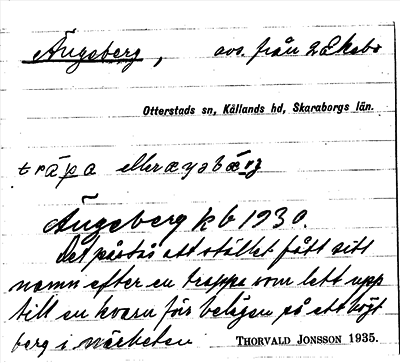 Ängeberg, avs. från 2 Ekebo
Otterstads sn, Kållands hd, Skaraborgs län.
träpa eller
Ängeberg kb 1930.
Det påstås att stället fått sitt
namn efter en trappa som lett upp
till en kvarn förr belägen på ett högt
berg i närheten
THORVALD JONSSON 1935.